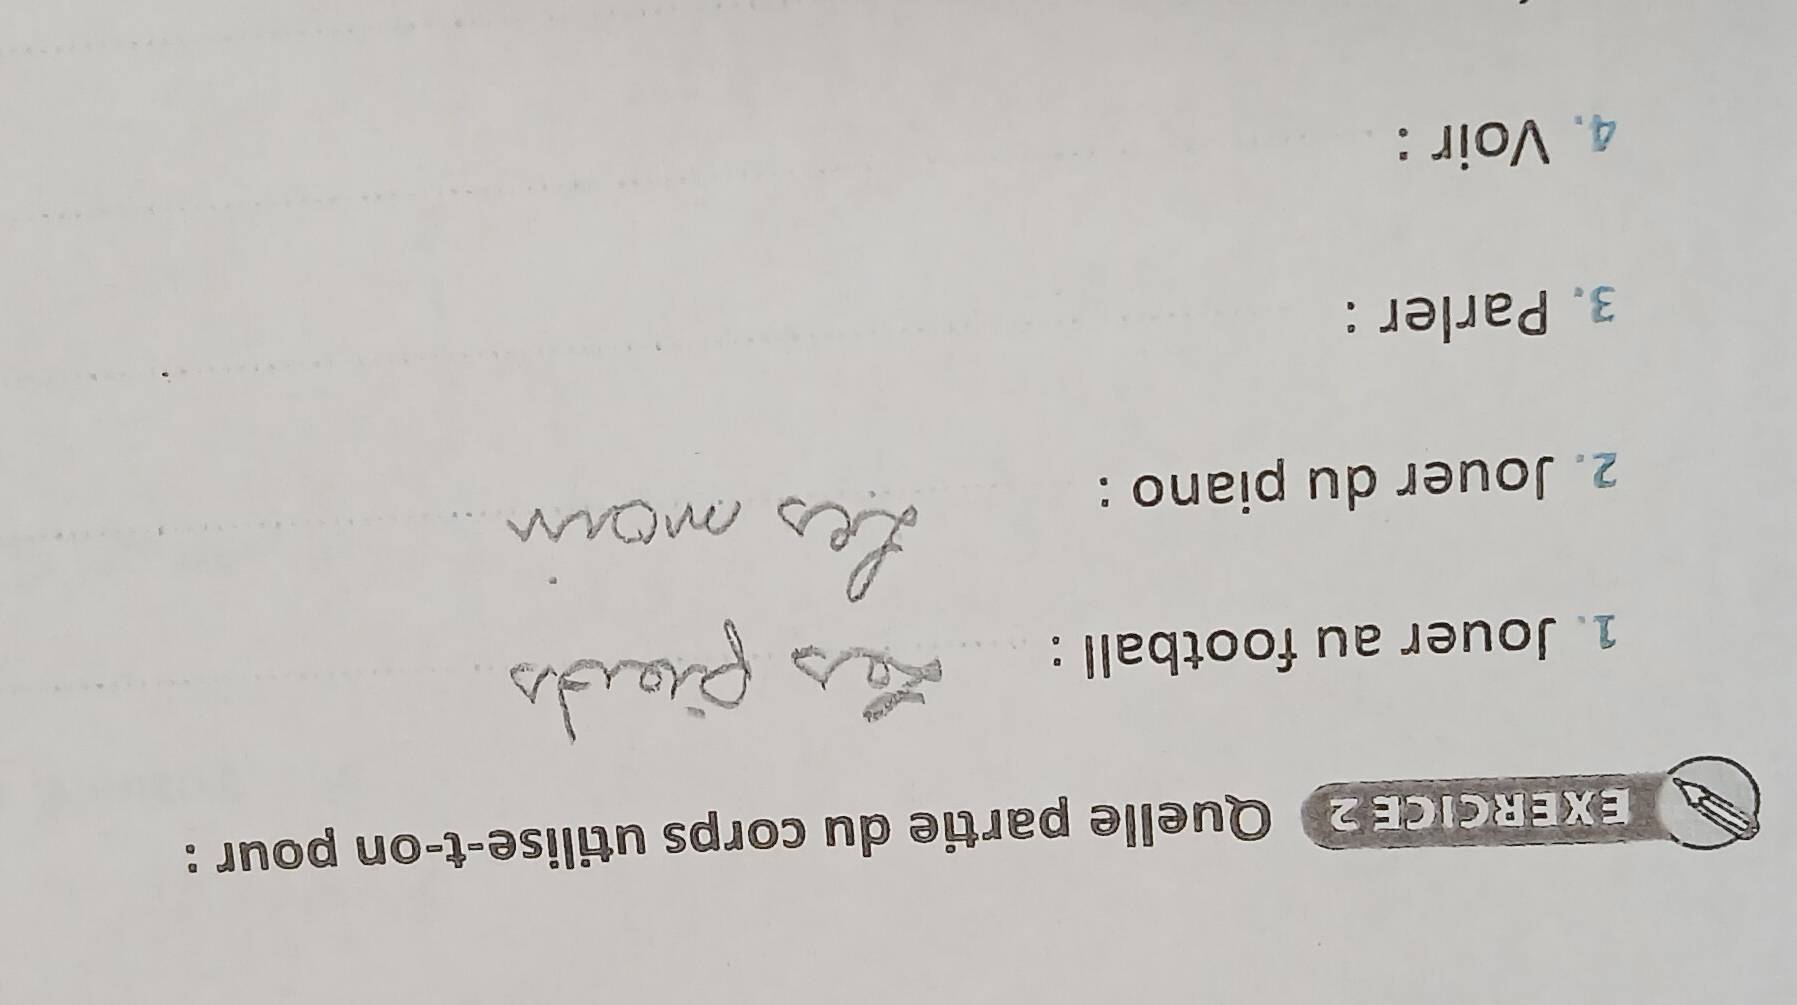 EXERCICE 2 Quelle partie du corps utilise-t-on pour :
1. Jouer au football : Les pieds
2. Jouer du piano : Les main
3. Parler :
4. Voir :